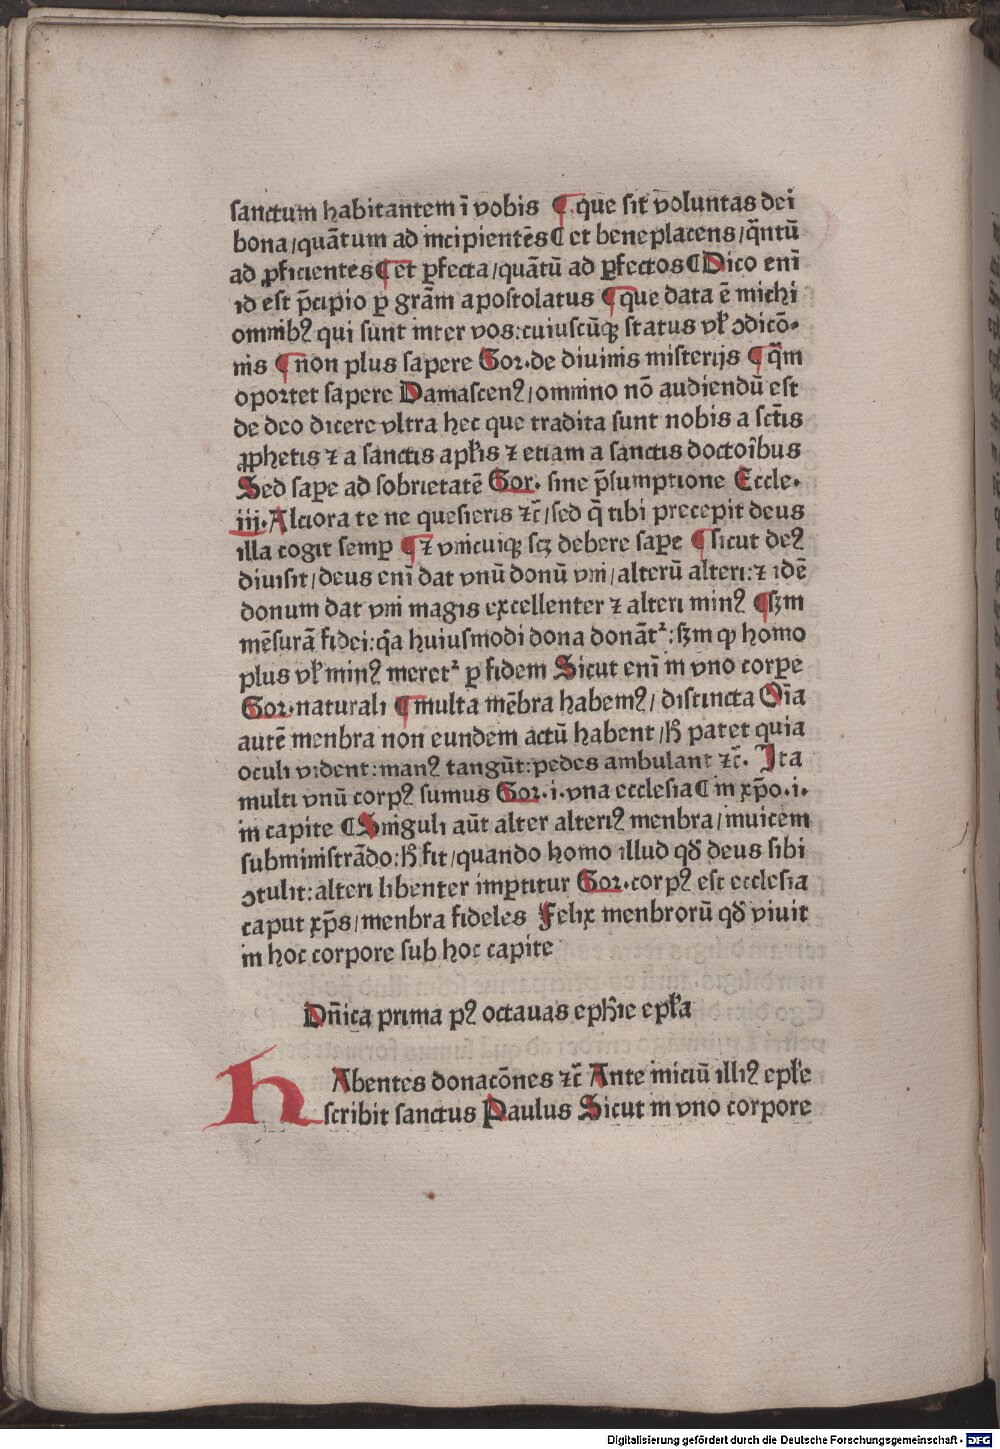 sanctum habitantem ī vobis ¶ que sit̄ voluntas dei
bona/quātum ad incipientēs ¶ et beneplacens/q̄ntū
ad ꝓficientes ¶ et ꝑfecta/quātū ad ꝑfectos ¶ Dico enī
id est p̄cipio ꝑ grām apostolatus ¶ que data ē michi
omnibꝰ qui sunt inter vos:cuiuscūqꝫ status vl̓ ↄdicō⸗
nis ¶ non plus sapere Gor. de diuinis misterijs ¶ q̄m
oportet sapere Damascenꝰ/omnino nō audiendū est
de deo dicere vltra hec que tradita sunt nobis a sct̄is
ꝓphetis ⁊ a sanctis apl̓is ⁊ etiam a sanctis doctoı̄bus
Sed saꝑe ad sobrietatē Gor. sine p̄sumptione Eccle.
iii. Alciora te ne quesieris ⁊c̄/sed q̄ tibi precepit deus
illa cogit semꝑ ¶ ⁊ vnicuiqꝫ scꝫ debere saꝑe ¶ sicut deꝰ
diuisit/deus enī dat vnū donū vni/alterū alteri:⁊ idē
donum dat vni magis excellenter ⁊ alteri minꝰ ¶ sꝫm
mēsurā fidei:q̄a huiusmodi dona donāt᷑:sꝫm ꝙ homo
plus vl̓ minꝰ meret᷑ ꝑ fidem Sicut enī in vno corꝑe
Gor. naturali ¶ multa mēbra habemꝰ/distincta Oīa
autē menbra non eundem actū habent/h̓ patet quia
oculi vident:manꝰ tangūt:pedes ambulant ⁊c̄. Ita
multi vnū corpꝰ sumus Gor. i. vna ecclesia ¶ in xp̄o.i.
in capite ¶ Singuli aūt alter alteriꝰ menbra/inuicem
subministrādo:h̓ fit/quando homo illud qd̓ deus sibi
ↄtulit:alteri libenter imꝑtitur Gor. corpꝰ est ecclesia
caput xp̄s/menbra fideles Felix menbrorū qd̓ viuit
in hoc corpore sub hoc capite
Dn̄ica prima pꝰ octauas eph̓ie epl̓a
HAbentes donacōnes ⁊c̄ Ante iniciū illiꝰ epl̓e
scribit sanctus Paulus Sicut in vno corpore
Digitalisierung gefördert durch die Deutsche Forschungsgemeinschaft - DFG